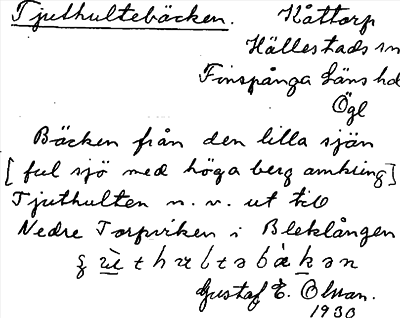 Tjuthultebäcken. Kåttorp
Hällestads sn
Finspånga läns hd
Ögl
Bäcken från den lilla sjön
[ful sjö med höga berg omkring]
Tjuthulten n. v. ut till
Nedre Torpviken i Bleklången
Gustaf E. Olson.
1930